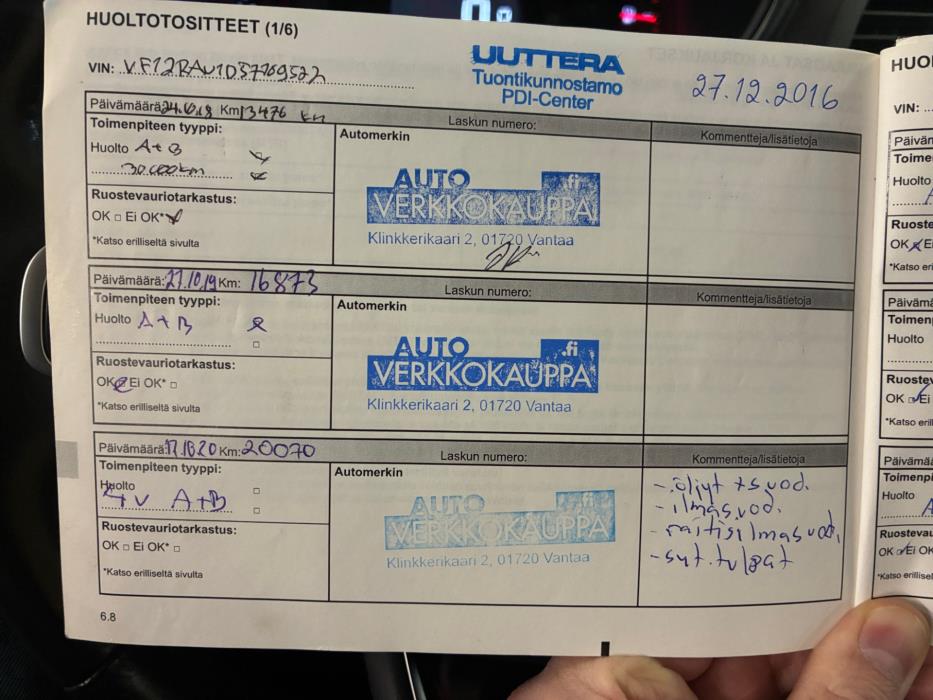 HUOLTOTOSITTEET (1/6)
UUTTERA
Tuontikunnostamo
PDI-Center
27.12.2016
VIN:
Päivämäärä: Km: 13476 km
Laskun numero:
Kommentteja/lisätietoja
Toimenpiteen tyyppi:
Huolto A+B
30.000km
Automerkin
AUTO .fi
VERKKOKAUPPA
Klinkkerikaari 2, 01720 Vantaa
Ruostevauriotarkastus:
OK □ Ei OK*
*Katso erilliseltä sivulta
Päivämäärä: 27.10.19 Km: 16873
Laskun numero:
Kommentteja/lisätietoja
Toimenpiteen tyyppi:
Huolto A+B
Automerkin
AUTO .fi
VERKKOKAUPPA
Klinkkerikaari 2, 01720 Vantaa
Ruostevauriotarkastus:
OK Ei OK* □
*Katso erilliseltä sivulta
Päivämäärä: Km: 20070
Laskun numero:
Kommentteja/lisätietoja
Toimenpiteen tyyppi:
Huolto
4v A+B
Automerkin
AUTO .fi
VERKKOKAUPPA
Klinkkerikaari 2, 01720 Vantaa
- öljyt +s.vod.
- ilmas.vod.
- raitisilmasvod.
- syt.tulpat
Ruostevauriotarkastus:
OK □ Ei OK* □
*Katso erilliseltä sivulta
6.8
HUO
VIN:
Päivän
Toime
Huolto
Ruoste
OK Ei
*Katso eri
Päivämä
Toimen
Huolto
Ruostev
OK Ei
*Katso eril
Päivämää
Toimenpi
Huolto
Ruostevau
OK Ei OK
*Katso erillisel